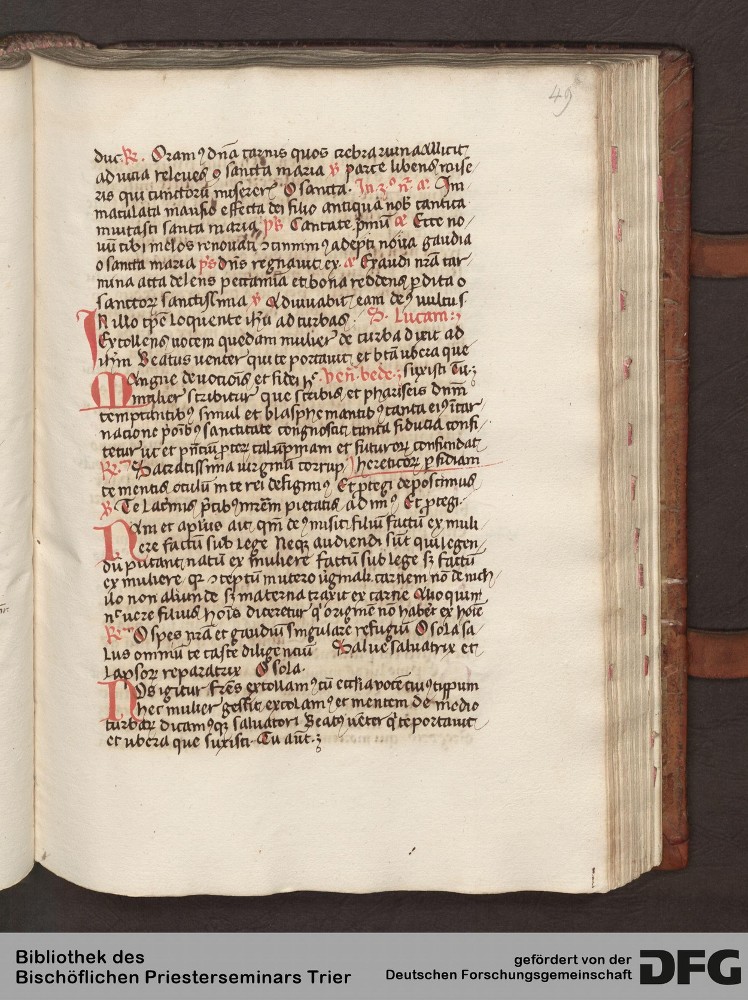 49
duc. R. Oram9 dña carnis quos crebra ruina allicit
ad uicia releues o sancta maria v parce libens mise
ris qui cunctorū misereris O sancta. In 3o nō. a. Im
maculata mansio effecta dei filio antiqua nob cantica
mutasti sancta maria ps Cantate pmū a Ecce no
uū tibi melos renouati
adepti noua gaudia
o sancta maria ps dñs regnauit ex. a Exaudi nrā car
mina acta delens peccamīa et bona reddens pdita o
sanctorꝝ sanctissima v Adiuuabit eam de9 uultu s
In illo tpe Loquente ihū ad turbas. S. Lucam
Extollens uocem quedam mulier de turba dixit ad
ihm Beatus uenter qui te portauit et bta ubera que
Magne deuotiois et fidei h9 . Veñ. bede. suxisti Tu.
mulier scribitur que scribis et phariseis dnm
temptantib9 simul et blasphemantib9 tanta ei9 icar
nacione p oīb9 sanctitate congnoscit tanta fiducia confi
tetur ut et pñciū pcerꝝ calūpniam et futurorꝝ confundat
R. Sacratissima uirginū corrup hereticorꝝ pfidiam
te mentis oculum in te rei defigim9 Et ptegi deposcimus
v Te lacrimis pcib9 mrēm pietatis adim9 Et ptegi.
Nam et aplus ait qm̄ de9 misit filiū factū ex muli
ere factū sub lege Neqꝫ audiendi sūt qui legen
dū putant natū ex muliere factū sub lege sꝫ factū
ex muliere qr
ex utero uginali carnem nō de nich
ilo non aliunde sꝫ materna traxit ex carne Alioquin
nc uere filius hois diceretur q origine nō habet ex hoie
R. O spes nrā et gaudiū singulare refugiū O sola sa
lus omniū te caste diligenciū Salue saluatrix et
lapsorꝝ reparatrix O sola.
Nos igitur frēs extollam9 cū
uocē cui9 typum
hec mulier gessit extolam9 et mentem de medio
turbarꝝ dicam9qꝫ saluatori Beat9 uēter q te portauit
et ubera que suxisti. Tu aūt.
Bibliothek des
Bischöflichen Priesterseminars Trier
gefördert von der
Deutschen Forschungsgemeinschaft DFG